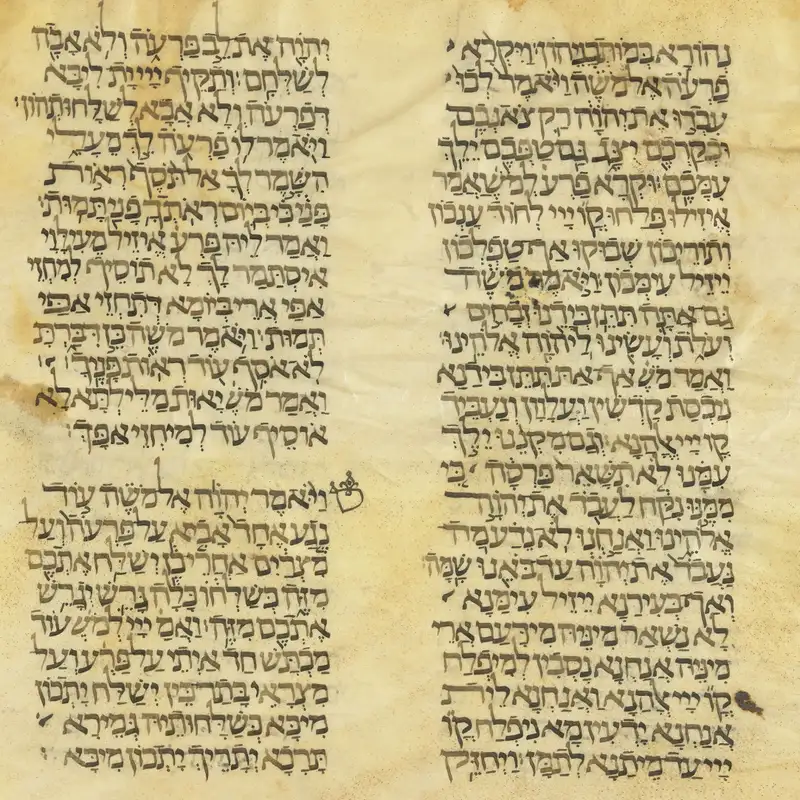 נהורא במותבניהון ויקרא
פרעה אל משה ויאמר לכו
עבדו את יהוה רק צאנכם
ובקרכם יצג גם טפכם ילך
עמכם וקרא פרע למש ואמר
איזילו פלחו קו ייי לחוד ענכון
ותוריכון שבוקו אף טפלכון
ייזיל עימכון ויאמר משה
גם אתה תתן בידנו זבחים
ועלת ועשינו ליהוה אלהינו
ואמר מש אף את תתן בידנא
ניכסת קדשין ועלוון ונעביד
קו ייי אלהנא וגם מקננו ילך
עמנו לא תשאר פרסה כי
ממנו נקח לעבד את יהוה
אלהינו ואנחנו לא נדע מה
נעבד את יהוה עד באנו שמה
ואף בעירנא ייזיל עימנא
לא נשאר מיניה מידעם ארי
מיניה אנחנא נסבין למיפלח
קו ייי אלהנא ואנחנא לית
אנחנא ידעין מא ניפלח קו
ייי עד מיתנא לתמן ויחזק
יהוה את לב פרעה ולא אבה
לשלחם ותקיף ייי ית ליבא
דפרעה ולא אבא לשלחותהון
ויאמר לו פרעה לך מעלי
השמר לך אל תסף ראות
פני כי ביום ראתך פני תמות
ואמר ליה פרע איזיל מעילוי
איסתמר לך לא תוסיף למחזי
אפי ארי ביומא דתחזי אפי
תמות ויאמר משה כן דברת
לא אסף עוד ראות פניך
ואמר מש יאות מלילתא לא
אוסיף עוד למיחזי אפך
ויאמר יהוה אל משה עוד
נגע אחד אביא על פרעה ועל
מצרים אחרי כן ישלח אתכם
מזה כשלחו כלה גרש יגרש
אתכם מזה ואמ ייי למש עוד
מכתש חד איתי על פרע ועל
מצראי בתר כין ישלח יתכון
מיכא כשלחותיה גמירא
תרכא יתריך יתכון מיכא